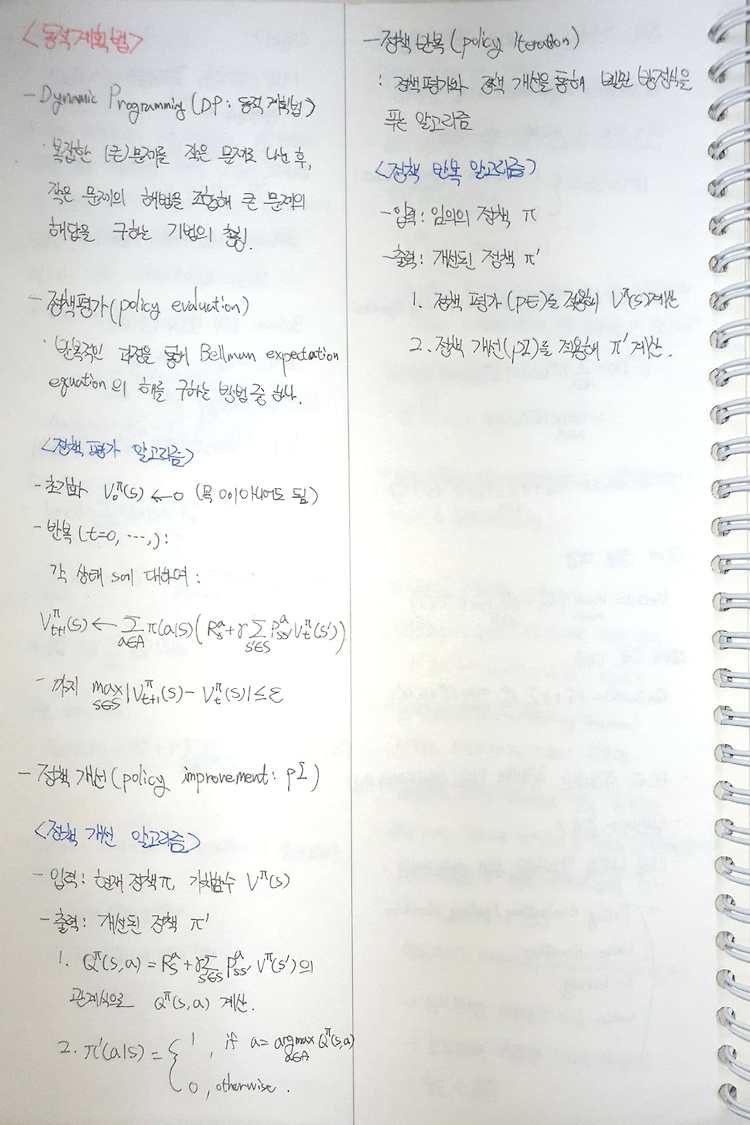 <동적계획법>
- Dynamic Programming (DP : 동적 계획법)
· 복잡한 (큰)문제를 작은 문제로 나눈 후,
작은 문제의 해법을 조합해 큰 문제의
해답을 구하는 기법의 총칭.
- 정책평가(policy evaluation)
· 반복적인 과정을 통해 Bellman expectation
equation의 해를 구하는 방법 중 하나.
<정책 평가 알고리즘>
- 초기화 V₀^π(s) ← 0 (꼭 0이 아니어도 됨)
- 반복 (t=0, ⋯,) :
각 상태 s에 대하여 :
V_{t+1}^π(s) ← Σ_{a∈A} π(a|s) ( R_s^a + γ Σ_{s'∈S} P_{ss'}^a V_t^π(s') )
- 까지 max_{s∈S} |V_{t+1}^π(s) - V_t^π(s)| ≤ ε
- 정책 개선(policy improvement : PI)
<정책 개선 알고리즘>
- 입력 : 현재 정책 π, 가치함수 V^π(s)
- 출력 : 개선된 정책 π'
1. Q^π(s,a) = R_s^a + γ Σ_{s'∈S} P_{ss'}^a V^π(s')의
관계식으로 Q^π(s,a) 계산.
2. π'(a|s) = { 1 , if a = argmax_{a∈A} Q^π(s,a)
0 , otherwise .
- 정책 반복 (policy iteration)
: 정책평가와 정책 개선을 통해 벨만 방정식을
푸는 알고리즘
<정책 반복 알고리즘>
- 입력 : 임의의 정책 π
- 출력 : 개선된 정책 π'
1. 정책 평가 (PE)를 적용해 V^π(s) 계산
2. 정책 개선(PI)를 적용해 π' 계산.